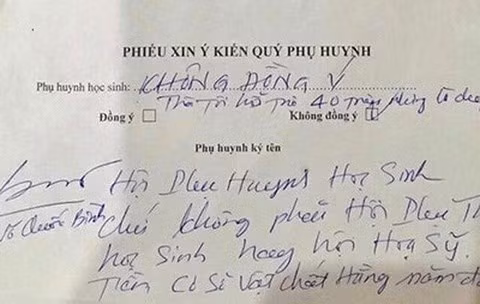 PHIẾU XIN Ý KIẾN QUÝ PHỤ HUYNH
Phụ huynh học sinh: KHÔNG ĐỒNG Ý
Hỗ trợ 40 triệu
Đồng ý ☐ Không đồng ý ☑
Phụ huynh ký tên
Hội Phụ Huynh Học Sinh
Võ Quốc Bình chứ không phải Hội Phụ
học Sinh hay hội Họa Sỹ.
Tiền Cơ Sở Vật chất Hằng năm